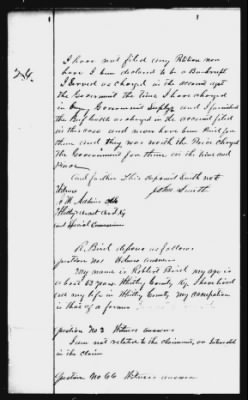 24.
I have not filed any Petition nor
have I been declared to be a Bankrupt
I served as charged in the account agst
the Government the time I have charged
in Government Supplys and I furnished
the Beef cattle as charged in the account filed
in this case and never have been Paid for
them and they was worth the Price charged
the Government for them at the time and
Place
And further This deponent saith not
Witness John Smith
Whitley
and Special Commissioner
R. Bird deposes as follows
Question No 1 Witness answers
My name is Robert Bird my age is
about 63 years Whitley County Ky. I have lived
all my life in Whitley County my occupation
is that of a farmer
Question No 2 Witness answers
I am not related to the claimant, or Interested
in the claim
Question No 66 Witness answers